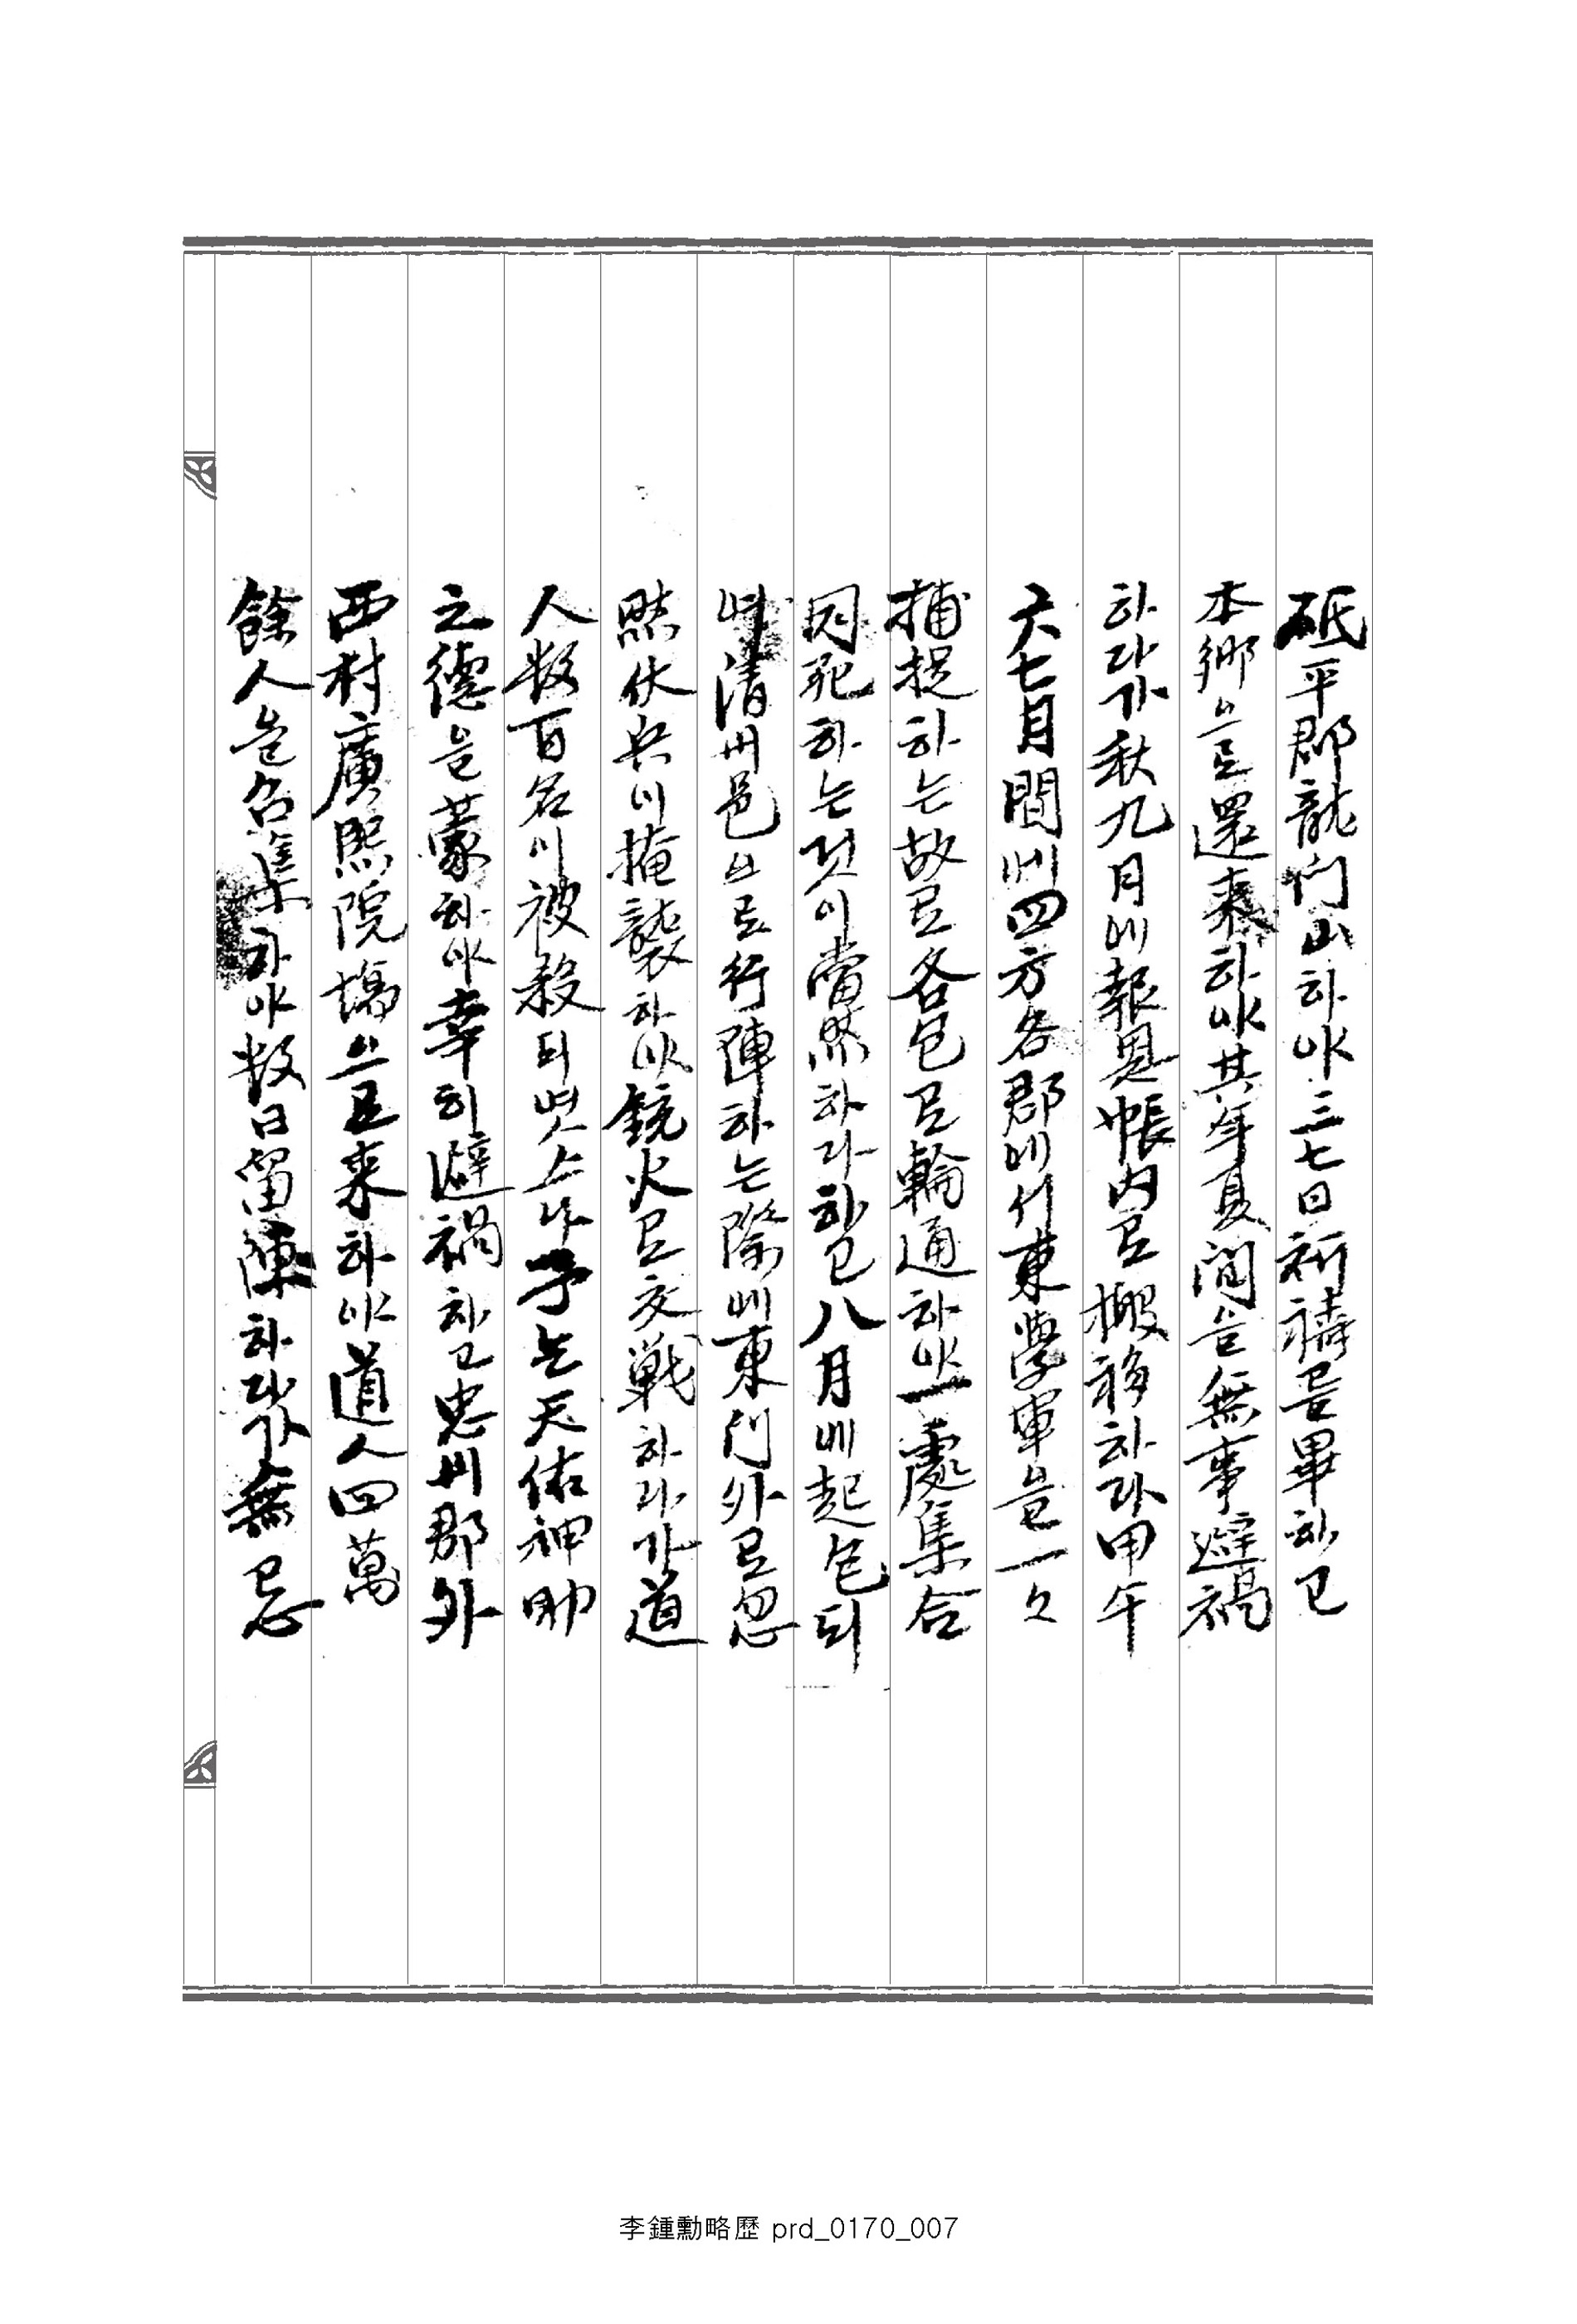 砥平郡龍門山하야三七日祈禱를畢하고
本鄕으로還來하야其年夏間은無事避禍
하다가秋九月에報恩帳內로搬移하다甲午
六七月間에四方各郡에서東學軍을一々
捕捉하는故로各包로輪通하야一處集合
因死하는것이當然하다하고八月에起包되
야淸州邑으로行陣하는際에東門外로忽
然伏兵이掩襲하야銃火로交戰하다가道
人數百名이被殺되엿스나予는天佑神助
之德을蒙하야幸히避禍하고忠州郡外
西村廣熙院塲으로來하야道人四萬
餘人을召集하야數日留陳하다가無忌
李鍾勳略歷 prd_0170_007